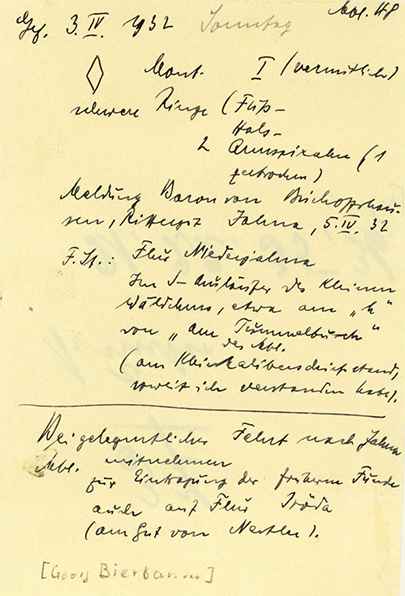 Gef. 3. IV. 1932 Sonntag Mbl. 48
Mont. I (vermutlich)
schwere Ringe (Fuß-
Hals-
2 Armspiralen (1
zerbrochen)
Meldung Baron von Bischoffshau-
sen, Rittergut Jahna, 5. IV. 32
F. St.: Flur Niederjahna
Im S-Ausläufer des kleinen
Wäldchens, etwa am „h“
von „Am Tümmelbusch“
des Mbl.
(am Kleinkaliberschießstand,
soweit ich verstanden habe).
Bei gelegentlicher Fahrt nach Jahna
Mbl. mitnehmen
zur Eintragung der früheren Funde
auch auf Flur Pröda
(am Gut von
[Georg Bierbaumer]